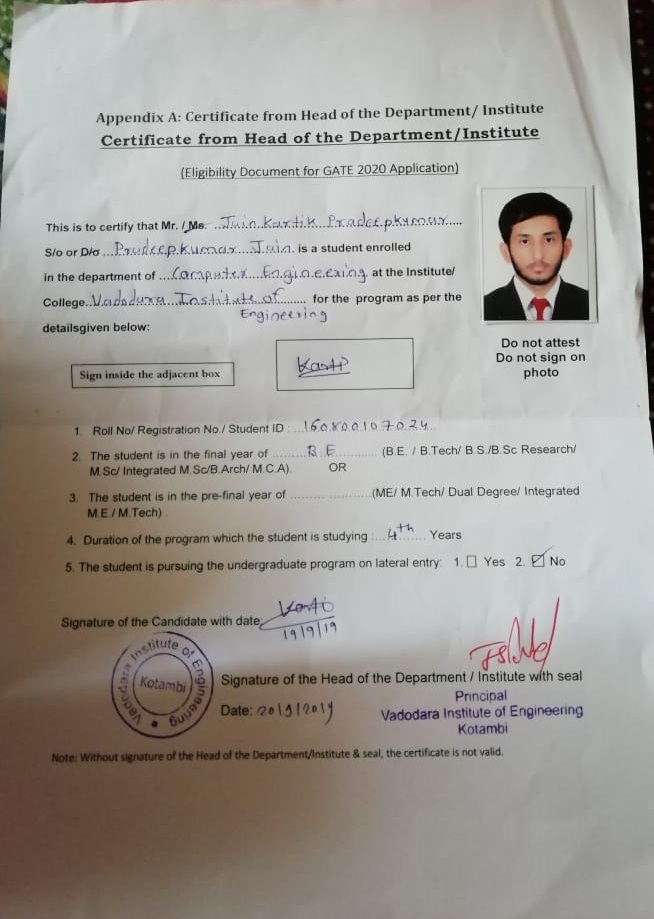 Appendix A: Certificate from Head of the Department/ Institute
Certificate from Head of the Department/Institute
(Eligibility Document for GATE 2020 Application)
This is to certify that Mr. / Ms. ..Jain.Kartik Pradeepkumar.....
S/o or D/o ...Pradeepkumar...Jain. is a student enrolled
in the department of ...Computer...Engineering at the Institute/
College..Vadodara...Institute of........ for the program as per the
Engineering
detailsgiven below:
Do not attest
Do not sign on
photo
Sign inside the adjacent box
1. Roll No/ Registration No./ Student ID :...160800107024..
2. The student is in the final year of ........B.E............ (B.E. / B.Tech/ B.S./B.Sc Research/
M.Sc/ Integrated M.Sc/B.Arch/ M.C.A). OR
3. The student is in the pre-final year of .....................(ME/ M.Tech/ Dual Degree/ Integrated
M.E./ M.Tech)
4. Duration of the program which the student is studying :...4th... Years
5. The student is pursuing the undergraduate program on lateral entry: 1. ☐ Yes 2. ☑ No
Signature of the Candidate with date:
19/9/19
Vadodara Institute of Engineering
Kotambi
Signature of the Head of the Department / Institute with seal
Date: 20/9/2019
Principal
Vadodara Institute of Engineering
Kotambi
Note: Without signature of the Head of the Department/Institute & seal, the certificate is not valid.